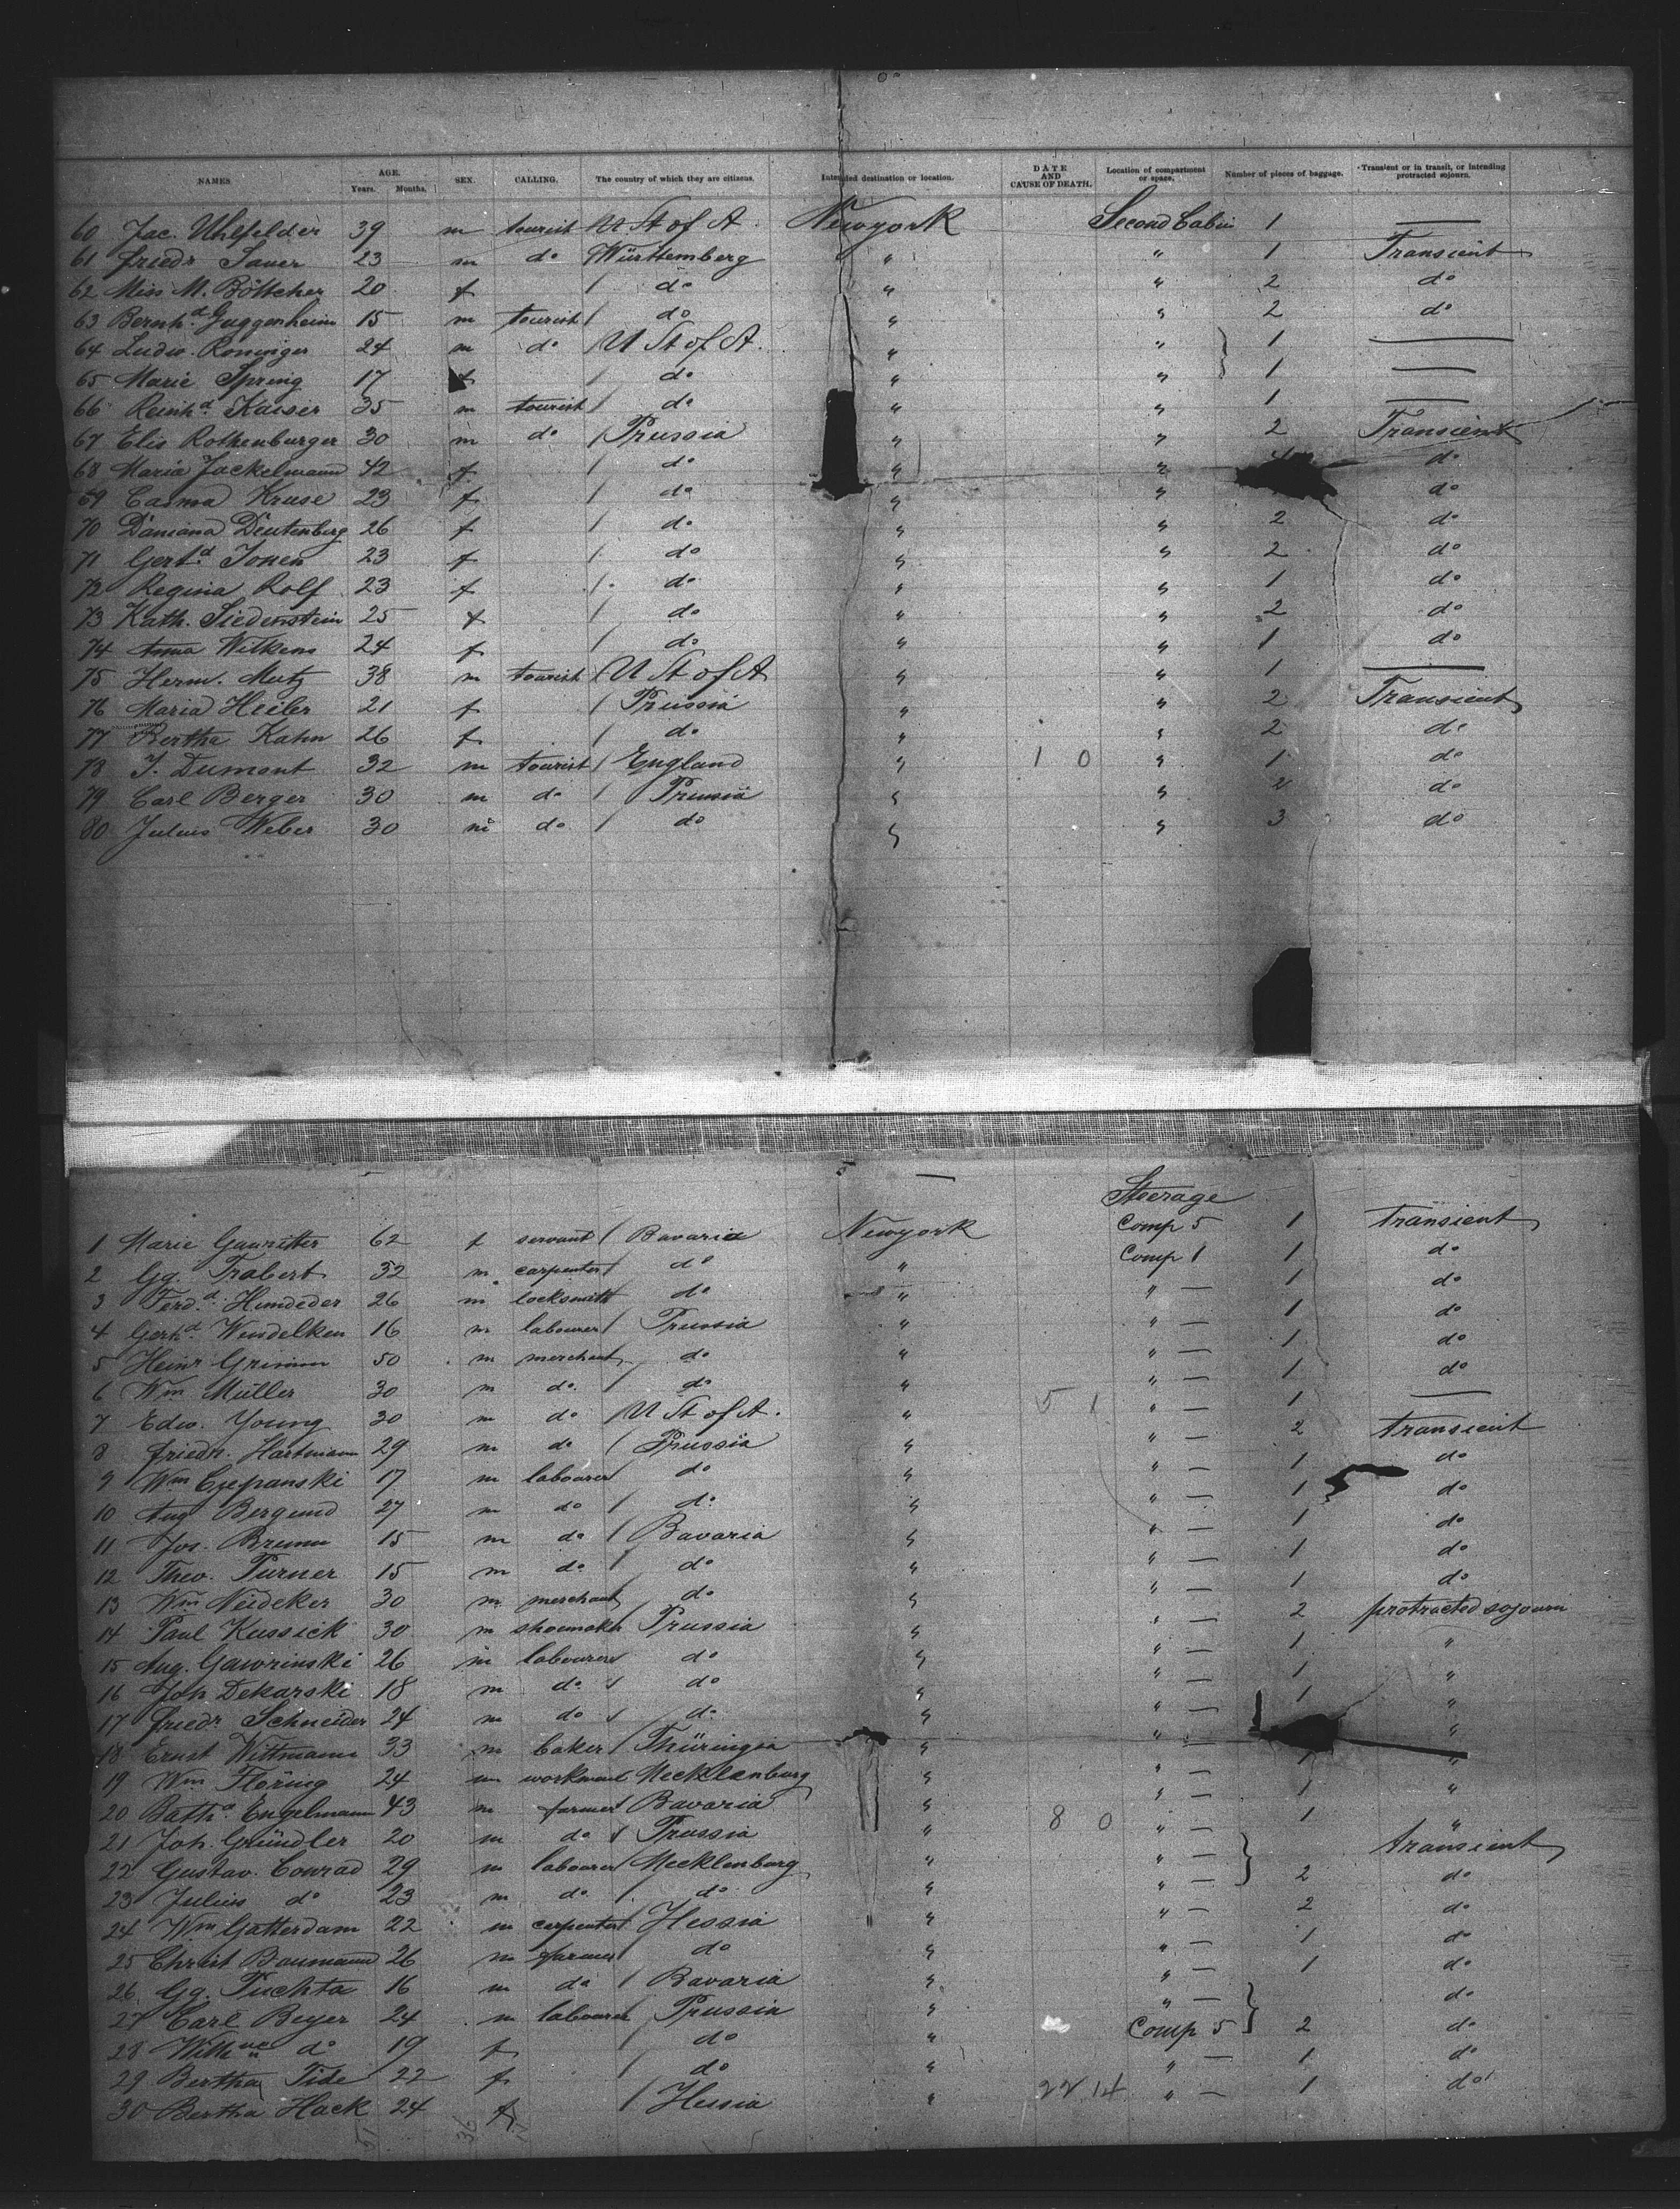 NAMES AGE. Years. Months. SEX. CALLING. The country of which they are citizens. Intended destination or location. DATE AND CAUSE OF DEATH. Location of compartment or space. Number of pieces of baggage. Transient or in transit, or intending protracted sojourn.
60 Jac. Uhlfelder 39 m tourist U St of A. Newyork Second Cabin 1 —
61 Friedr Sauer 23 m do Württemberg " " 1 Transient
62 Miss M. Böttcher 20 f / do " " 2 do
63 Bernhd Guggenheim 15 m tourist / do " " 2 do
64 Ludw. Roninger 24 m do / U St of A. " " 1 —
65 Marie Spring 17 f / do " " 1 —
66 Reinhd Kaiser 35 m tourist / do " " 1 —
67 Elis Rothenburger 30 m do / Prussia " " 2 Transient
68 Maria Jackelmann 42 f / do " " do
69 Casma Kruse 23 f / do " " do
70 Damana Deutenberg 26 f / do " " 2 do
71 Gertd Jonen 23 f / do " " 2 do
72 Regina Rolf 23 f / do " " 1 do
73 Kath. Siedenstein 25 f / do " " 2 do
74 Anna Wilkens 24 f / do " " 1 do
75 Herm. Mutz 38 m tourist / U St of A " " 1 —
76 Maria Heiler 21 f / Prussia " " 2 Transient
77 Bertha Kahn 26 f / do " " 2 do
78 J. Dumont 32 m tourist / England " 1 0 " 1 do
79 Carl Berger 30 m do / Prussia " " 2 do
80 Julius Weber 30 m do / do " " 3 do
Steerage
1 Marie Gauritter 62 f servant / Bavaria Newyork Comp 5 1 transient
2 Gg. Trabert 32 m carpenter / do " Comp 1 1 do
3 Ferd.d Hundeder 26 m locksmith do " " — 1 do
4 Gerhd Wendelken 16 m labourer / Prussia " " — 1 do
5 Heinr Grimm 50 m merchant do " " — 1 do
6 Wm Müller 30 m do / do " " — 1 do
7 Edw. Young 30 m do / U St of A. " 5 1 " — 1 —
8 Friedr. Hartmann 29 m do / Prussia " " — 2 transient
9 Wm Czepanski 17 m labourer / do " " — 1 do
10 Aug Bergund 27 m do / do " " — 1 do
11 Jos. Brunn 15 m do / Bavaria " " — 1 do
12 Theo. Purner 15 m do / do " " — 1 do
13 Wm Neideker 30 m merchant do " " — 1 do
14 Paul Kussick 30 m shoemaker Prussia " " — 2 protracted sojourn
15 Aug. Gawrinski 26 m labourer do " " — 1 "
16 Joh Dekarski 18 m do / do " " — 1 "
17 Friedr Schneider 24 m do / do " " — 1 "
18 Ernst Wittmann 33 m baker / Thüringia " " — "
19 Wm Flöring 24 m workman Mecklenburg " " — 1 "
20 Balthr Engelmann 43 m farmer Bavaria " " — 1 "
21 Joh. Gründler 20 m do / Prussia " 8 0 " — 1 "
22 Gustav. Conrad 29 m labourer / Mecklenburg " " — transient
23 Julius do 23 m do / do " " — 2 do
24 Wm Gatterdam 22 m carpenter Hessia " " — 2 do
25 Christ Baumann 26 m farmer do " " — 1 do
26 Gg. Puchta 16 m do / Bavaria " " — 1 do
27 Carl Beyer 24 m labourer Prussia " " — do
28 Wilhne do 19 f / do " Comp 5 2 do
29 Bertha Tide 22 f / do " " — 1 do
30 Bertha Hack 24 f / Hessia " 22 14 " — 1 do
51 36